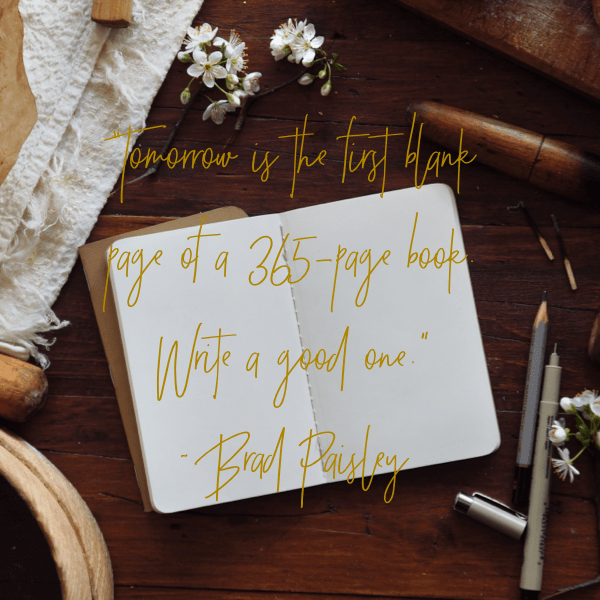 "Tomorrow is the first blank
page of a 365-page book.
Write a good one."
- Brad Paisley